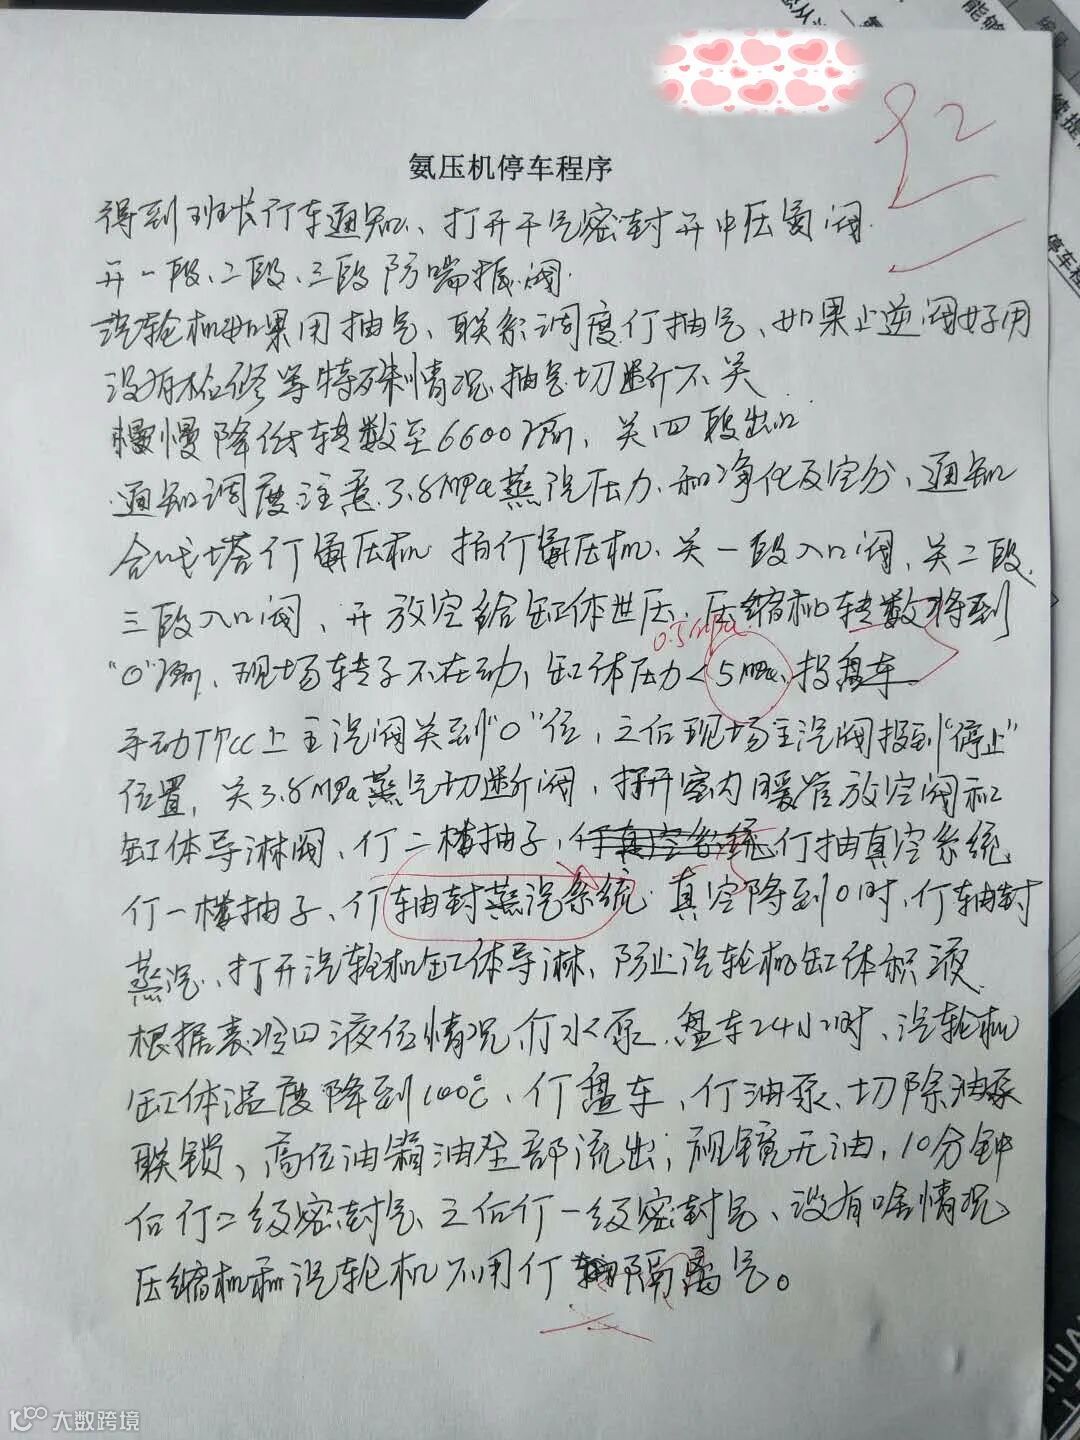 氨压机停车程序
得到班长仃车通知、打开干气密封开中压氮阀
开一段、二段、三段防喘振阀
汽轮机如果用抽气、联系调度仃抽气、如果止逆阀好用
没有检修等特殊情况抽气切断不关
慢慢降低转数至6600
关四段出口
通知调度注意3.8MPa蒸汽压力和净化及空分、通知
合成塔仃氨压机 拍仃氨压机、关一段入口阀、关二段
三段入口阀、开放空给缸体泄压、压缩机转数将到
0.5MPa
"0"
现场转子不在动、缸体压力<5MPa、投盘车
手动TPCC上主汽阀关到"0"位,之后现场主汽阀投到"停止"
位置,关3.8MPa蒸气切断阀,打开室内暖管放空阀和
缸体导淋阀、仃二楼抽子,仃真空系统仃抽真空系统
仃一楼抽子、仃轴封蒸汽系统 真空降到0时、仃轴封
蒸汽、打开汽轮机缸体导淋、防止汽轮机缸体积液
根据表冷四液位情况仃水泵 盘车24小时、汽轮机
缸体温度降到100℃、仃盘车、仃油泵、切除油泵
联锁、高位油箱油全部流出,视镜无油,10分钟
后仃二级密封气、之后仃一级密封气、没有啥情况
压缩机和汽轮机不用仃隔离气。
大数跨境
停车程